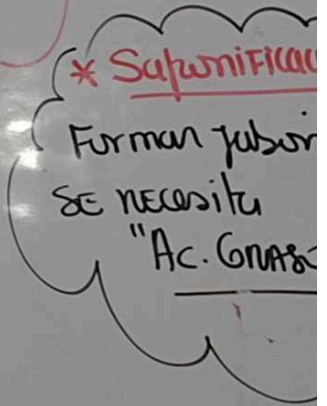 * Saponificac
Forman jabon
SE NECesita
"Ac. GRASO